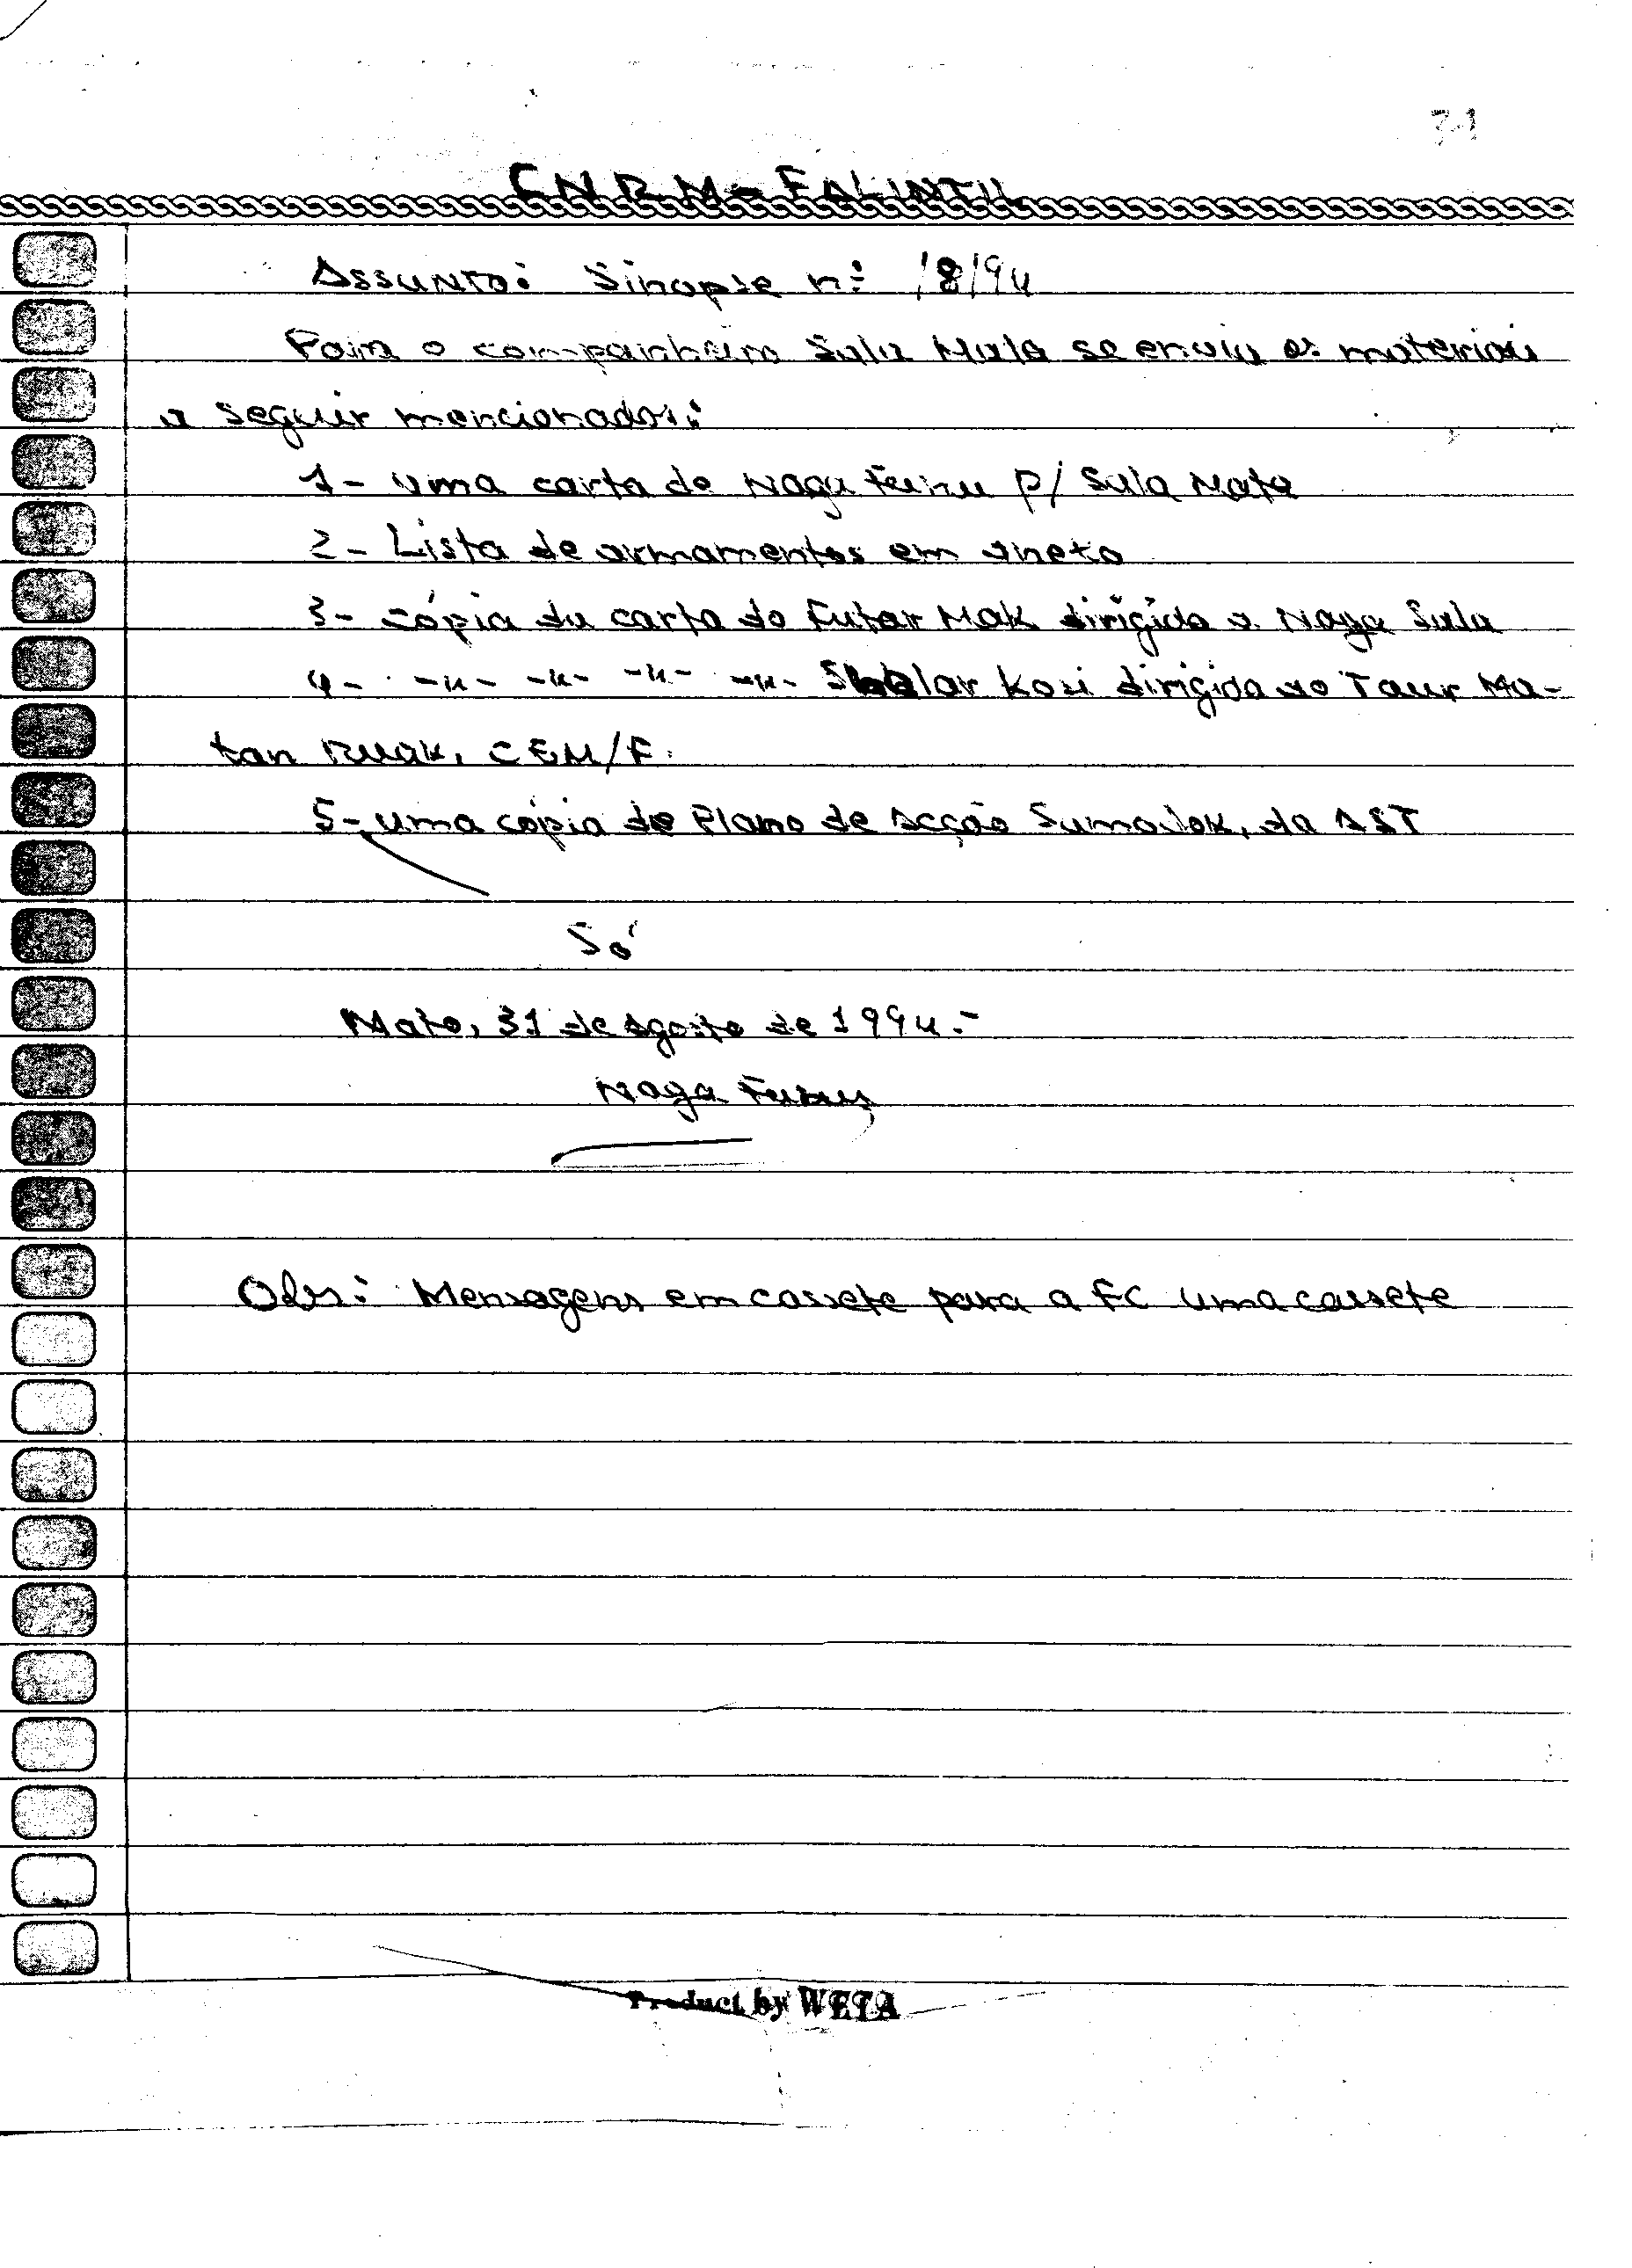 71
CNRM-FALINTIL
Assunto: Sinopse nº /8/94
Para o companheiro Sula Mata se envia os materiais
a seguir mencionados:
1- uma carta de Naga Feinu p/ Sula Mata
2- Lista de armamentos em aneto
3- cópia da carta do Futar Mak dirigida a Naga Sula
4- -"- -"- -"- -"- lar Kosi dirigida ao Taur Ma-
tan Ruak, CEM/F.
5- uma cópia de Plano de Acção da AST
Só
Mato, 31 de Agosto de 1994.-
Naga
Obs: Mensagens em cassete para a FC uma cassete
Product by WETA